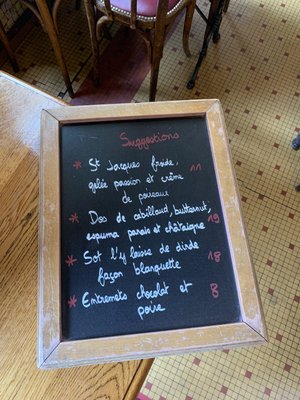 Suggestions
* St Jacques froide,
gelée passion et crème 11
de poireaux
* Dos de cabillaud, butternut,
espuma panais et châtaigne 19
* Sot l'y laisse de dinde 18
façon blanquette
* Entremets chocolat et 8
poire